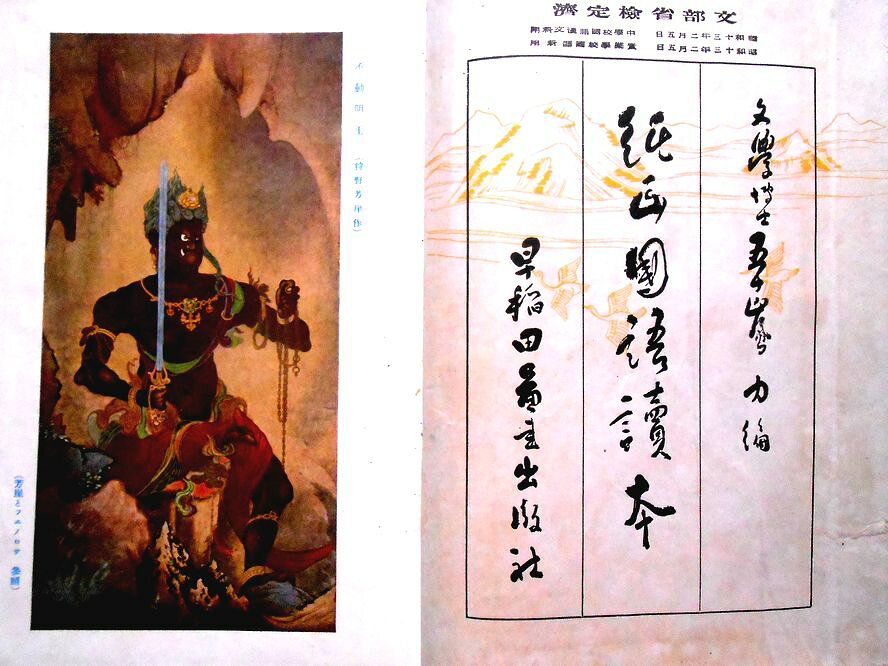 文部省檢定濟
昭和十三年二月五日 中學校國語漢文科用
昭和十三年二月五日 實業學校國語科用
文學博士 五十嵐 力編
純正國語讀本
早稻田圖書出版社
不動明王 (狩野芳崖作)
(芳崖とフエノロサ 參照)